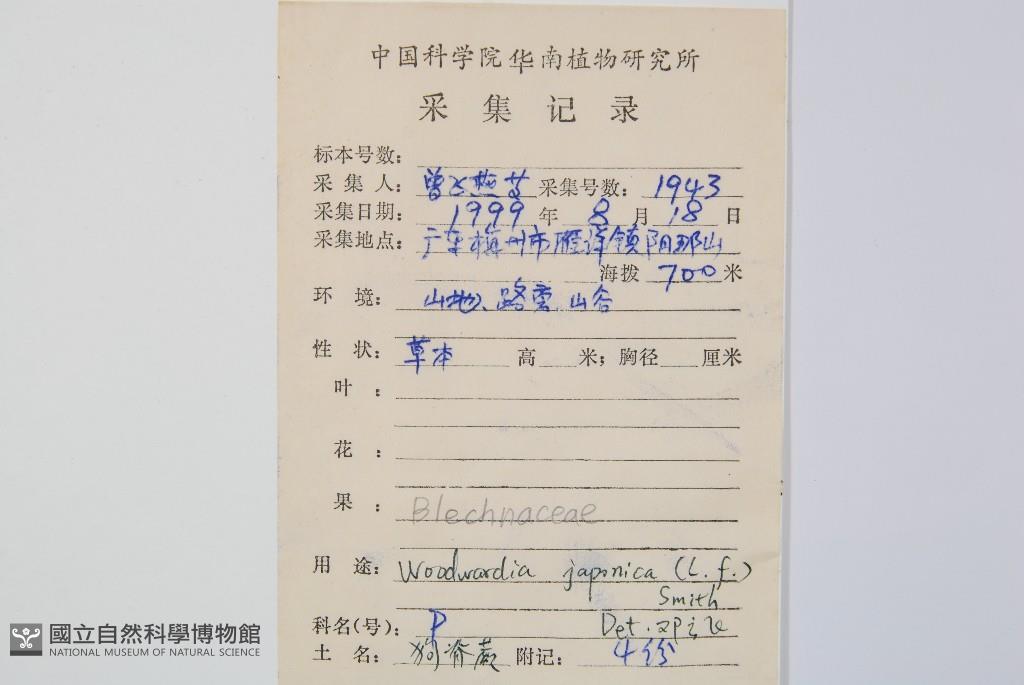 中国科学院华南植物研究所
采集记录
标本号数:
采集人: 曾 采集号数: 1943
采集日期: 1999 年 8 月 18 日
采集地点: 广东梅州市雁洋镇阴那山
海拨 700 米
环境: 山地、路旁、山谷
性状: 草本 高 米; 胸径 厘米
叶:
花:
果:
Blechnaceae
用途: Woodwardia japonica (L. f.)
Smith
科名(号): P Det.
土名: 狗脊蕨 附记: 4份
國立自然科學博物館
NATIONAL MUSEUM OF NATURAL SCIENCE